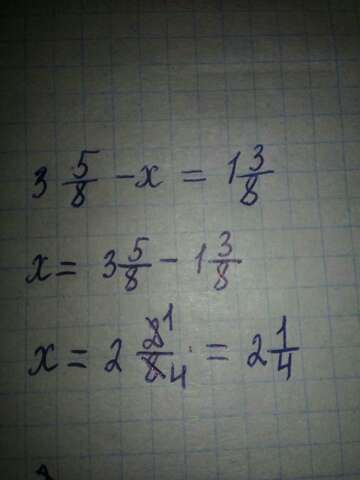 3 5/8 - x = 1 3/8
x = 3 5/8 - 1 3/8
x = 2 2/8 = 2 1/4